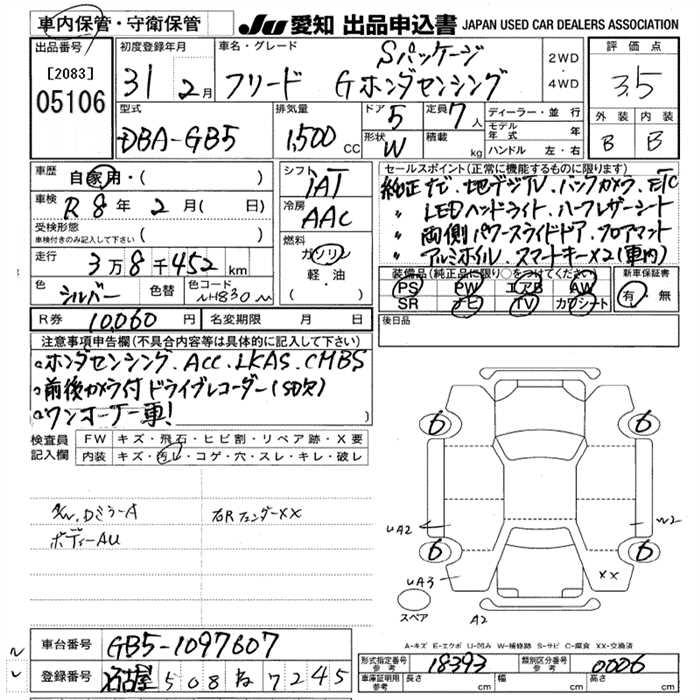 車内保管・守衛保管
JU 愛知 出品申込書 JAPAN USED CAR DEALERS ASSOCIATION
出品番号 [2083] 05106
初度登録年月 31 2月
車名・グレード フリード Sパッケージ Gホンダセンシング
2WD・4WD
評価点 3.5
外装 B 内装 B
型式 DBA-GB5
排気量 1,500 CC
ドア 5 定員 7人
形状 W 積載 kg
ディーラー・並行
モデル年式 年
ハンドル 左・右
車歴 自家用・( )
車検 R 8年 2月( 日)
受検形態 車検付きのみ記入して下さい ( )
走行 3万8千452km
色 シルバー 色替 色コード NH830M
シフト IAT
冷房 AAC
燃料 ガソリン 軽油 ( )
セールスポイント(正常に機能するものに限ります)
純正ナビ.地デジTV.バックカメラ.ETC
〃 LEDヘッドライト.ハーフレザーシート
〃 両側パワースライドドア.フロアマット
〃 アルミホイル.スマートキー×2(車内)
装備品(純正品に限り○をつけてください) 新車保証書
PS PW エアB AW 有・無
SR ナビ TV カワシート
R券 10,060円 名変期限 月 日
後日品
注意事項申告欄(不具合内容等は具体的に記入して下さい)
・ホンダセンシング.ACC.LKAS.CMBS
・前後カメラ付ドライブレコーダー(SD欠)
・ワンオーナー車!
検査員記入欄 FW キズ・飛石・ヒビ割・リペア跡・X要
内装 キズ・汚レ・コゲ・穴・スレ・キレ・破レ
DミラーA 右RフェンダーXX
ボディーAU
6 6
UA2 W2
6 6
UA3 XX
スペア A2
A-キズ E-エクボ U-凹み W-補修跡 S-サビ C-腐食 XX-交換済
車台番号 GB5-1097607
登録番号 名古屋 508 ね 7245
形式指定番号 参考 18393 類別区分番号 参考 0006
車庫証明用 参考 長さ cm 幅 cm 高さ cm